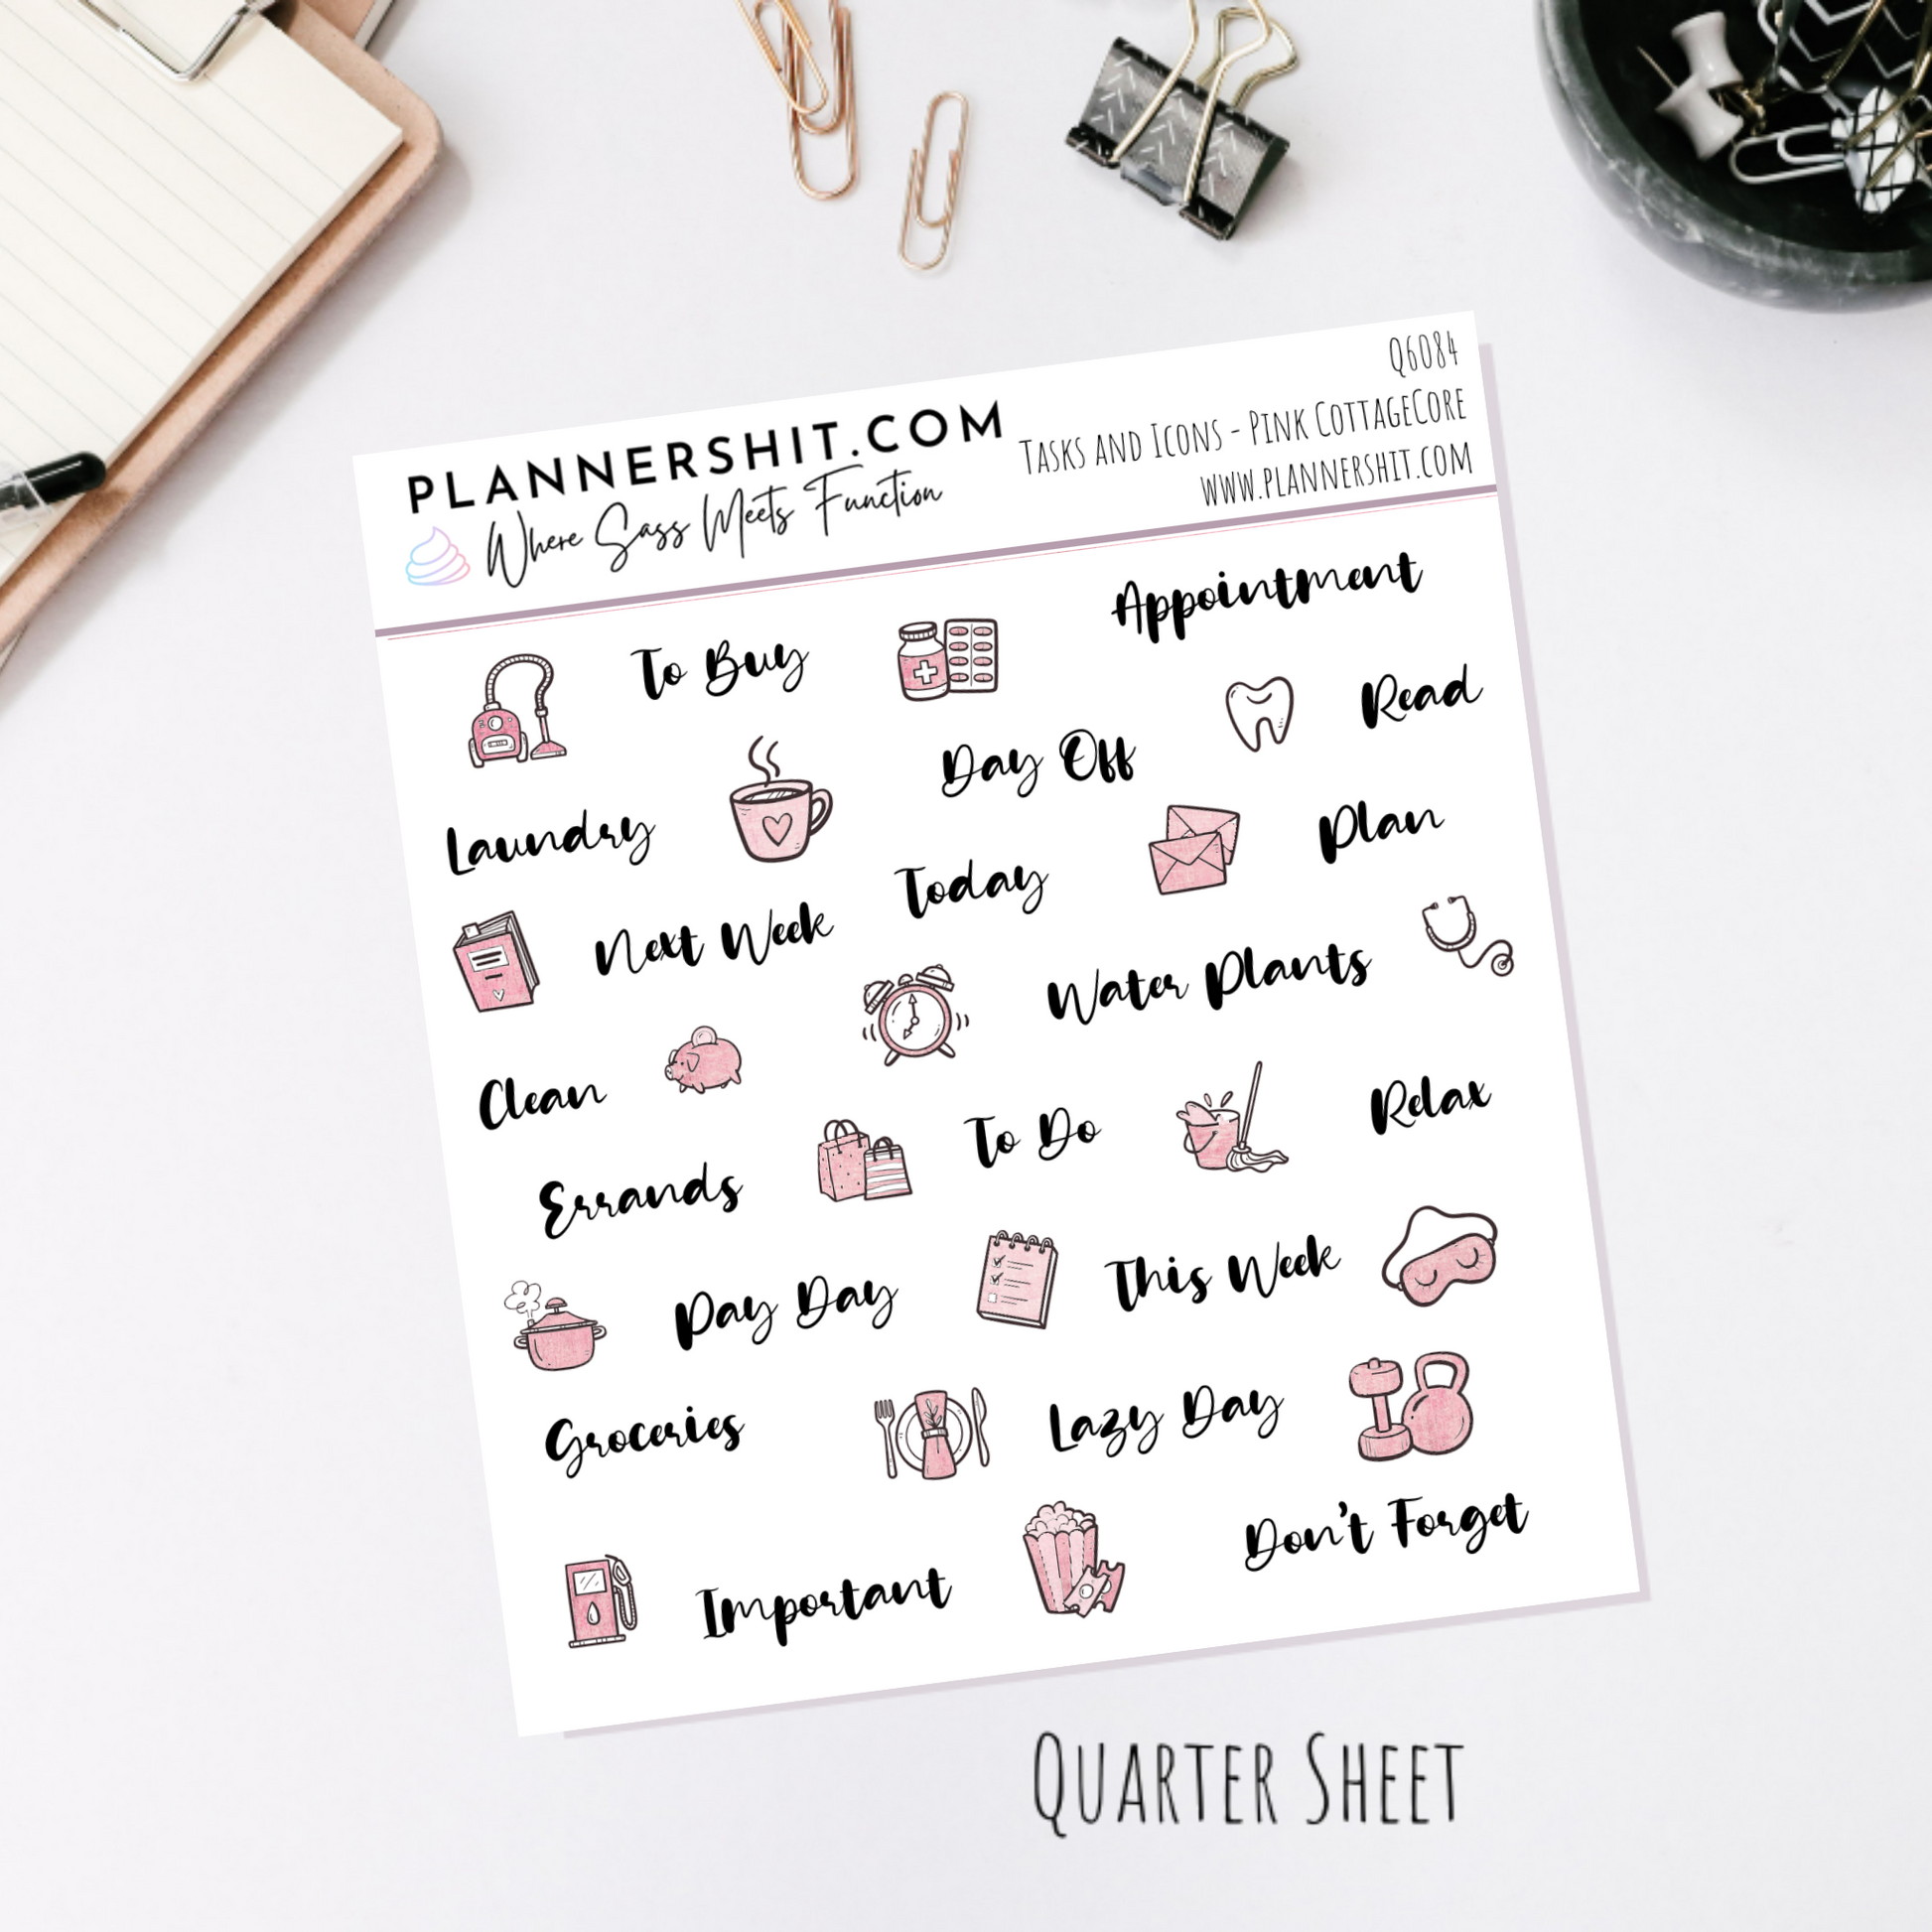 PLANNERSHIT.COM
Where Sass Meets Function
Q6084
Tasks and Icons - Pink CottageCore
www.plannershit.com
To Buy
Appointment
Read
Day Off
Laundry
Plan
Today
Next Week
Water Plants
Clean
Relax
To Do
Errands
This Week
Pay Day
Lazy Day
Groceries
Don't Forget
Important
Quarter Sheet